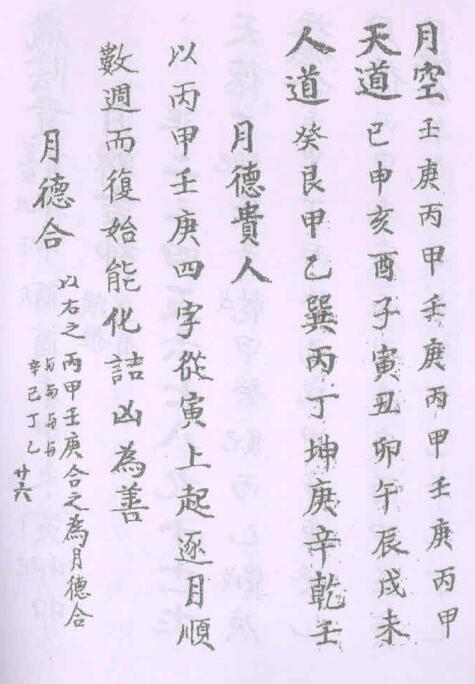 月空 壬庚丙甲壬庚丙甲壬庚丙甲
天道 巳申亥酉子寅丑卯午辰戌未
人道 癸艮甲乙巽丙丁坤庚辛乾壬
月德貴人
以丙甲壬庚四字從寅上起逐月順
數週而復始能化詰凶為善
月德合 以右之丙甲壬庚合之為月德合
与与与与
辛己丁乙
廿六